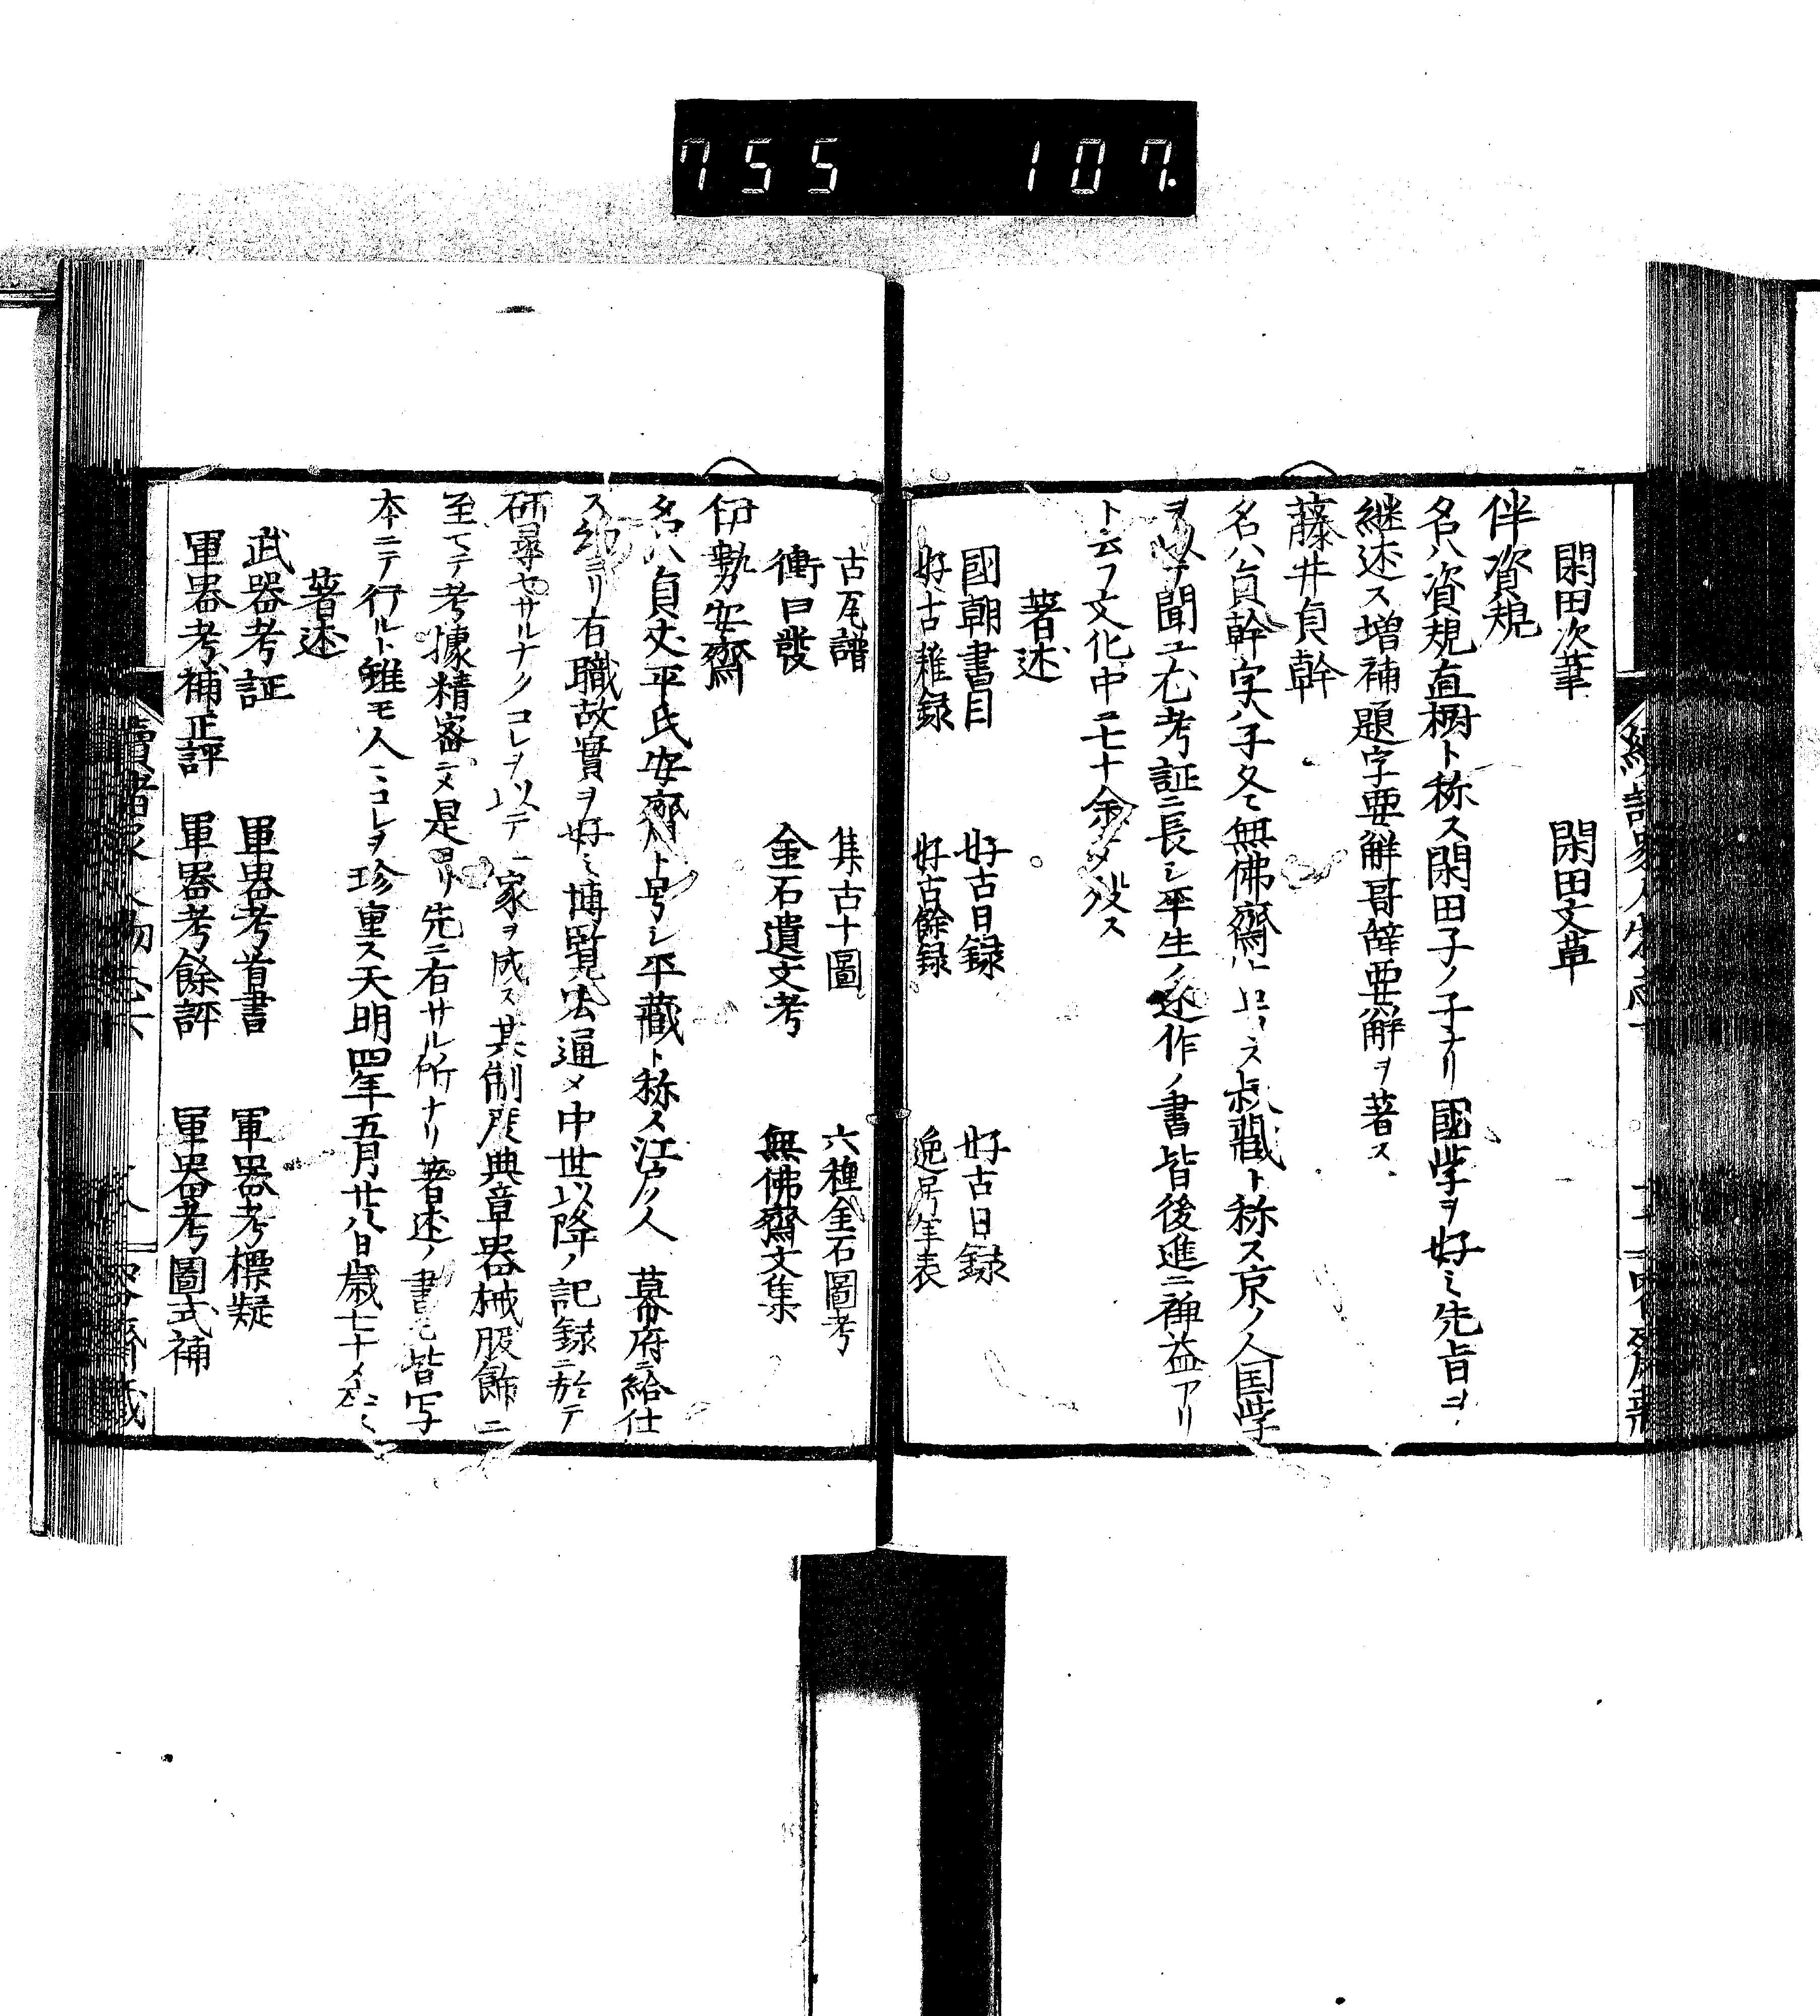 755 107.
閑田次筆 閑田文草
伴資規
名ハ資規直樹ト称ス閑田子ノ子ナリ國学ヲ好ミ先旨ヲ
継述ス増補題字要解哥辞要解ヲ著ス
藤井貞幹
名ハ貞幹字ハ子冬無佛齋ト号ス叔藏ト称ス京ノ人国学
ヲ以テ聞エ尤考証ニ長シ平生ノ述作ノ書皆後進ニ裨益アリ
ト云フ文化中ニ七十余ニメ没ス
著述
國朝書目 好古日録 好古日録
好古雜録 好古餘録 逸号年表
古瓦譜 集古十圖 六種金石圖考
衝口發 金石遺文考 無佛齋文集
伊勢安齋
名ハ貞丈平氏安齋ト号シ平藏ト称ス江戸ノ人 幕府ニ給仕
ス幼ヨリ有職故實ヲ好ミ博覧宏通メ中世以降ノ記録ニ於テ
研尋セサルナクコレヲ以テ一家ヲ成ス其制度典章器械服飾ニ
至テ考據精密ニメ是ヨリ先ニ有サル所ナリ著述ノ書モ皆写
本ニテ行ルト雖モ人ミコレヲ珍重ス天明四年五月廿八日歳七十メ
著述
武器考証 軍器考首書 軍器考標疑
軍器考補正評 軍器考餘評 軍器考圖式補